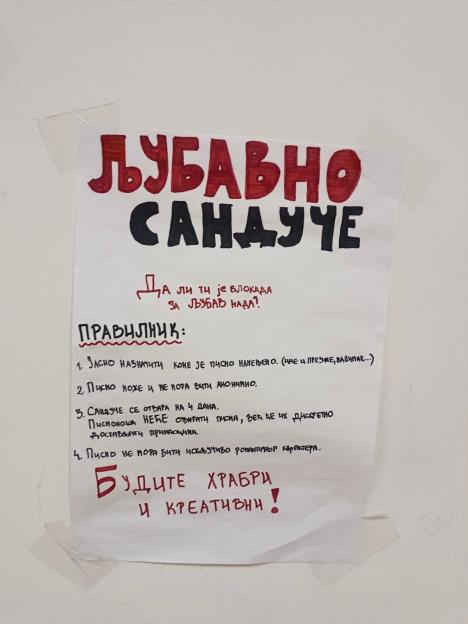 ЉУБАВНО
САНДУЧЕ
ДА ЛИ ТИ јЕ БЛОКАДА
ЗА ЉУБАВ НАДА?
ПРАВИЛНИК:
1. ЈАСНО НАЗНАЧИТИ КОМЕ ЈЕ ПИСМО НАМЕЊЕНО. (ИМЕ И ПРЕЗИМЕ, НАДИМАК...)
2. ПИСМО МОЖЕ И НЕ МОРА БИТИ АНОНИМНО.
3. САНДУЧЕ СЕ ОТВАРА НА 4 ДАНА.
ПИСМОНОША НЕЋЕ ОТВАРАТИ ПИСМА, ВЕЋ ЋЕ ИХ ДИСКРЕТНО
ДОСТАВЉАТИ ПРИМАОЦИМА.
4. ПИСМО НЕ МОРА БИТИ ИСКЉУЧИВО РОМАНТИЧНОГ КАРАКТЕРА.
БУДИТЕ ХРАБРИ
И КРЕАТИВНИ!